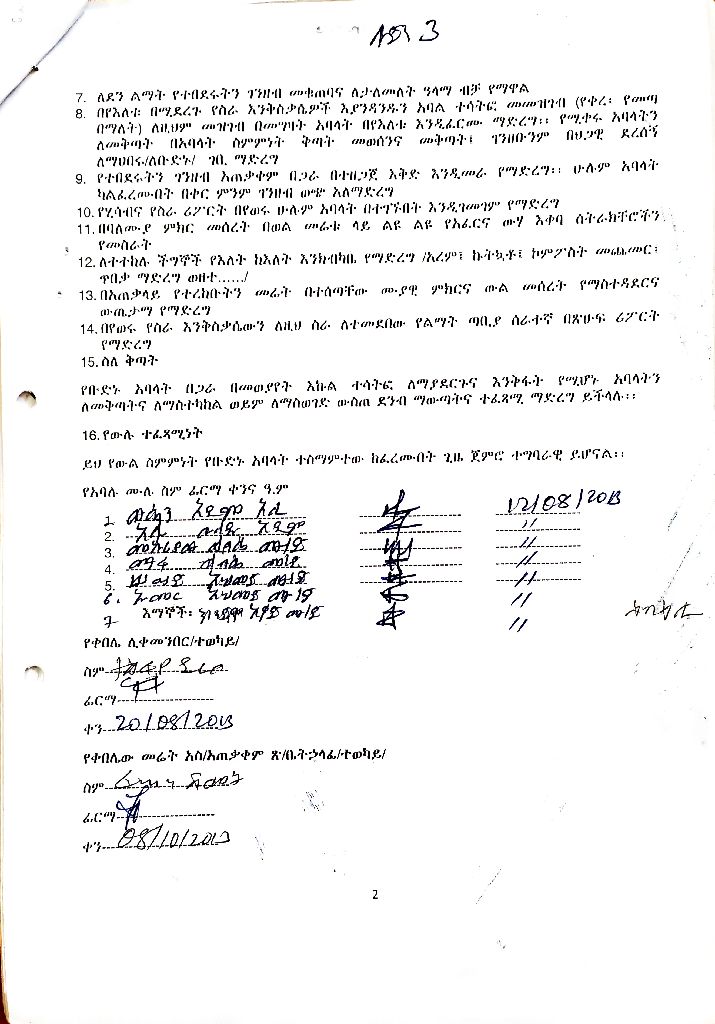 3
7. ለደን ልማት የተበደሩትን ገንዘብ መቁጠባና ለታለመለት ዓላማ ብቻ የማዋል
8. በየእለቱ በሚደረጉ የስራ እንቅስቃሴዎች እያንዳንዱን አባል ተሳትፎ መመዝገብ (የቀረ፡ የመጣ
በማለት) ለዚህም መዝገብ በመግባት አባላት በየእለቱ እንዲፈርሙ ማድረግ፡፡ የሚቀሩ አባላትን
ለመቅጣት በአባላት ስምምነት ቅጣት መወሰንና መቅጣት፤ ገንዘቡንም በህጋዊ ደረሰኝ
ለማህበሩ/ለቡድኑ/ ገቢ ማድረግ
9. የተበደሩትን ገንዘብ አጠቃቀም በጋራ በተዘጋጀ እቅድ እንዲመራ የማድረግ፡፡ ሁሉም አባላት
ካልፈረሙበት በቀር ምንም ገንዘብ ወጭ አለማድረግ
10. የሂሳብና የስራ ሪፖርት በየወሩ ሁሉም አባላት በተገኙበት እንዲገመገም የማድረግ
11. በባለሙያ ምክር መሰረት በወል መሬቱ ላይ ልዩ ልዩ የአፈርና ውሃ እቀባ ስትራክቸሮችን
የመስራት
12. ለተተከሉ ችግኞች የእለት ከእለት እንክብካቤ የማድረግ /አረም፤ ኩትኳቶ፤ ኮምፖስት መጨመር፤
ጥበቃ ማድረግ ወዘተ....../
13. በአጠቃላይ የተረከቡትን መሬት በተሰጣቸው ሙያዊ ምክርና ውል መሰረት የማስተዳደርና
ውጤታማ የማድረግ
14. በየወሩ የስራ እንቅስቃሴውን ለዚህ ስራ ለተመደበው የልማት ጣቢያ ሰራተኛ በጽሁፍ ሪፖርት
የማድረግ
15. ስለ ቅጣት
የቡድኑ አባላት በጋራ በመወያየት እኩል ተሳትፎ ለማያደርጉና እንቅፋት የሚሆኑ አባላትን
ለመቅጣትና ለማስተካከል ወይም ለማስወገድ ውስጠ ደንብ ማውጣትና ተፈጻሚ ማድረግ ይችላሉ፡፡
16. የውሉ ተፈጻሚነት
ይህ የውል ስምምነት የቡድኑ አባላት ተስማምተው ከፈረሙበት ጊዜ ጀምሮ ተግባራዊ ይሆናል፡፡
የአባሉ ሙሉ ስም ፊርማ ቀንና ዓ.ም
1. አደም አሊ 12/08/2013
2. አሊ አደም "
3. "
4. "
5. አህመድ "
6. አህመድ "
7. እማኞች፡ "
የቀበሌ ሊቀመንበር/ተወካይ/
ስም
ፊርማ
ቀን 20/08/2013
የቀበሌው መሬት አስ/አጠቃቀም ጽ/ቤትኃላፊ/ተወካይ/
ስም
ፊርማ
ቀን 08/10/2013
2